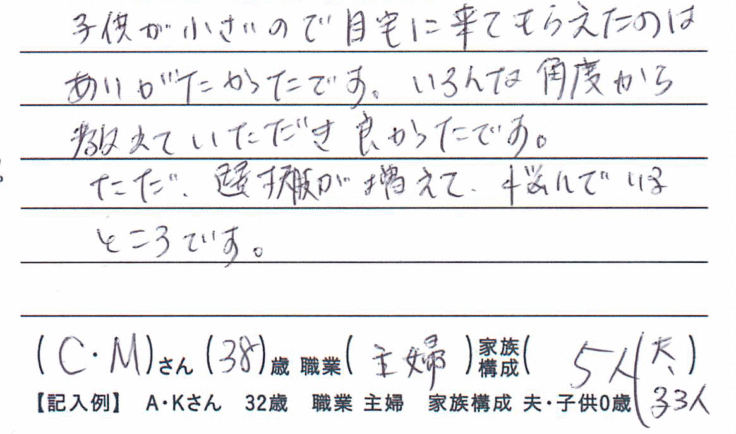 子供が小さいので自宅に来てもらえたのは
ありがたかったです。いろんな角度から
教えていただき良かったです。
ただ、選択肢が増えて、悩んでいる
ところです。
(C・M)さん (38)歳 職業(主婦)家族構成(5人(夫、子3人)
【記入例】 A・Kさん 32歳 職業 主婦 家族構成 夫・子供0歳